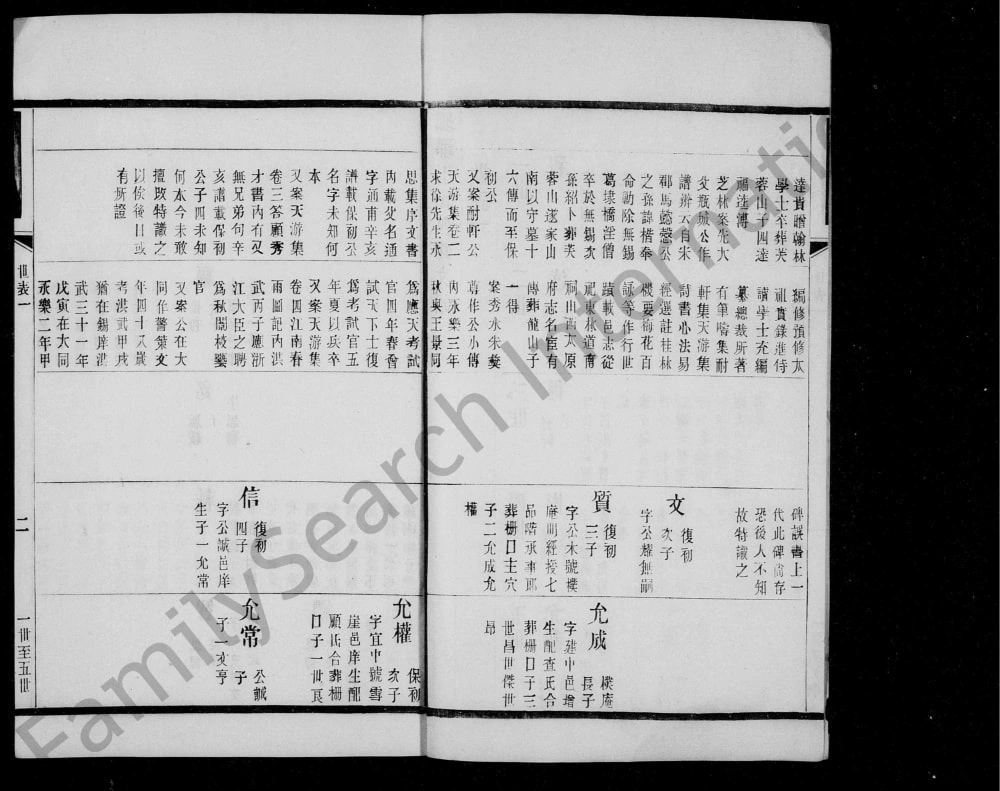 達貴贈翰林
學士卒葬芙
蓉山十四達
福造傳
芝林案先大
父瓶城公作
譜辨云自宋
郡馬懿愨公
之孫諱楷奉
命勅除無錫
葛埭橋淫僧
卒於無錫次
孫紹卜葬芙
蓉山遂家山
南以守墓十
六傳而至保
初公
又案耐軒公
天游集卷二
求徐先生永
思集序文書
內載父名通
字通甫辛亥
譜載保初公
名字未知何
本
又案天游集
卷三答顧秀
才書內有又
無兄弟句辛
亥譜載保初
公子四未知
何本今未敢
擅改特識之
以俟後日或
有所證
編修預修太
祖實錄進侍
講學士充編
纂總裁所著
有筆疇集耐
軒集天游集
詩書心法易
經選註桂林
機要梅花百
詠等作行世
蹟載邑志從
祀東林道南
祠山西太原
府志名宦有
傳葬龍山子
一得
案秀水朱彝
尊作公小傳
內永樂三年
秋與王景同
爲應天考試
官四年春會
試天下士復
爲考試官五
年夏以疾卒
又案天游集
卷四江南春
雨圖記內洪
武丙子應浙
江大臣之聘
爲秋闈校藝
官
又案公在大
同作警葉文
年四十八歲
考洪武甲戌
猶在錫庠洪
武三十一年
戊寅在大同
永樂二年甲
碑誤書上一
代此碑尚存
恐後人不知
故特識之
文
復初
次子
字公耀無嗣
質
復初
三子
字公木號樸
庵明經授七
品階承事郎
葬柵口主穴
子二允成允
權
信
復初
四子
字公誠邑庠
生子一允常
允成
樸庵
長子
字建中邑增
生配查氏合
葬柵口子三
世昌世傑世
昂
允權
保初
次子
字宜中號雪
崖邑庠生配
顧氏合葬柵
口子一世良
允常
公誠
子
子一文亨
世表一
二
一世至五世
FamilySearch International